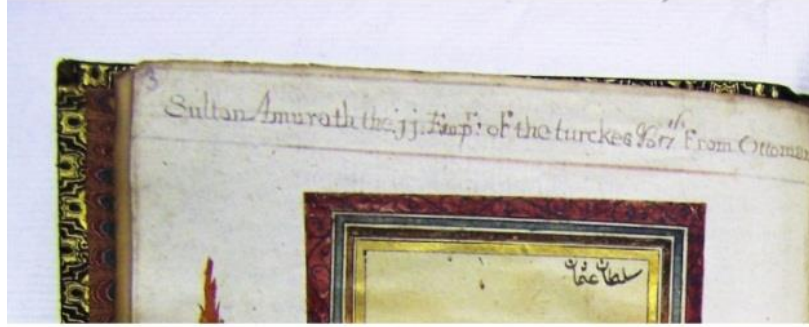 3
Sultan Amurath the jj. Empr: of the turckes from Ottoman
سلطان عثمان